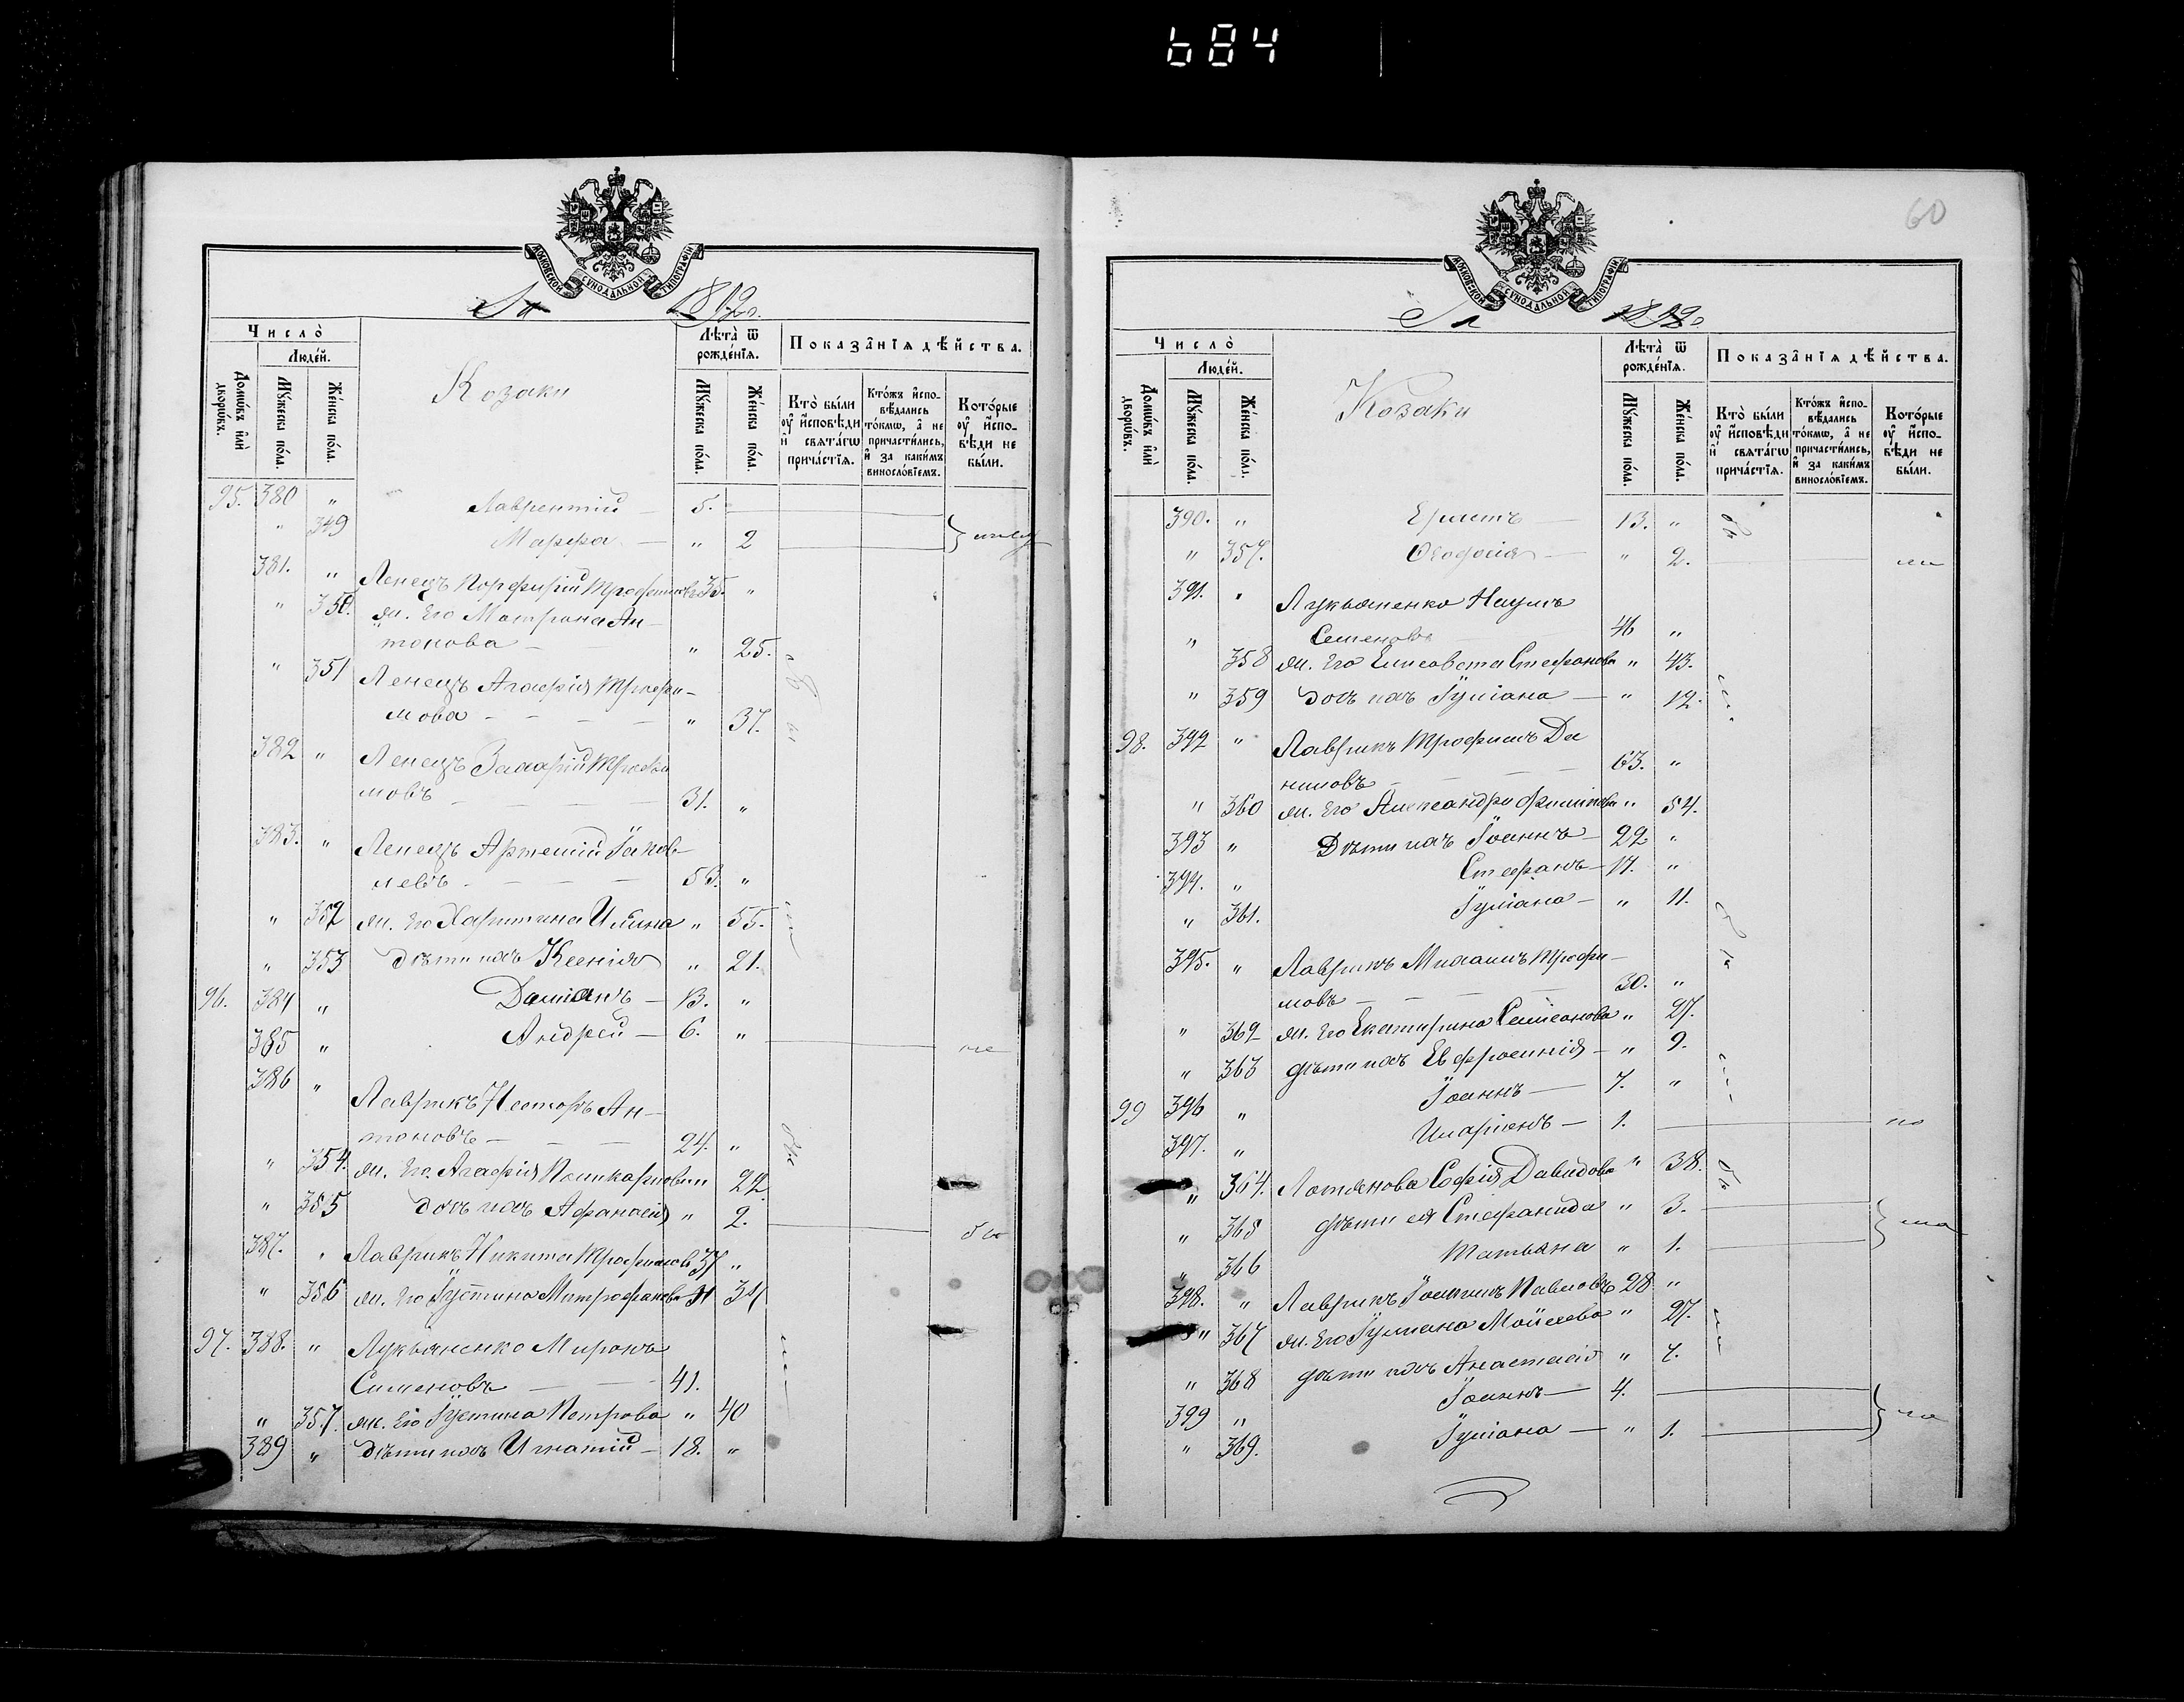 684
60
МОСКОВСКОЙ СѴНОДАЛЬНОЙ ТИПОГРАФІИ
1892 г.
Число̀
Людей.
Домѡвъ и҆лѝ дворѡвъ.
Мꙋжеска пола.
Же́нска пола.
Козаки
Лѣта̀ ѿ рожде́нїѧ.
Мꙋжеска пола.
Же́нска пола.
Показа̑нїѧ дѣ́йства.
Кто̀ бы́ли ᲂу҆ и҆сповѣди и҆ свѧта́гѡ прича́стїѧ.
Кто́жъ и҆сповѣдались то́кмѡ, а҆ не причасти́лись, и҆ за каки́мъ виносло́вїемъ.
Кото́рые ᲂу҆ и҆сповѣди не бы́ли.
95. 380 " Лаврентій — 5.
" 349 Марфа — " 2
381. " Ленецъ Порфирій Трофимовъ 35. "
" 350. жи. Его Матрона Ан-
тонова — " 25.
" 351 Ленецъ Агафія Трофи-
мова — " 37.
382 " Ленецъ Захарій Трофи
мовъ — 31. "
383. " Ленецъ Артемій Іаков-
левъ — 53. "
" 352 жи. Его Харитина Ильина " 55.
" 353 дѣти ихъ Ксенія " 21.
96. 384 " Даміанъ — 13. "
385 " Андрей — 6. "
386 " Лаврикъ Несторъ Ан-
тоновъ — 24. "
" 354. жи. Его Агафія Поликарповна 22
" 355 дочь ихъ Афанасія " 2.
387. " Лаврикъ Никита Трофимовъ 37 "
" 356 жи. Его Іустина Митрофанова 34
97. 388. " Лукьяненко Миронъ
Сименовъ — 41.
" 357. жи. Его Іустина Петрова " 40
389 " дѣти ихъ Игнатій — 18. "
МОСКОВСКОЙ СѴНОДАЛЬНОЙ ТИПОГРАФІИ
Число̀
Людей.
Домѡвъ и҆лѝ дворѡвъ.
Мꙋжеска пола.
Же́нска пола.
Козаки
Лѣта̀ ѿ рожде́нїѧ.
Мꙋжеска пола.
Же́нска пола.
Показа̑нїѧ дѣ́йства.
Кто̀ бы́ли ᲂу҆ и҆сповѣди и҆ свѧта́гѡ прича́стїѧ.
Кто́жъ и҆сповѣдались то́кмѡ, а҆ не причасти́лись, и҆ за каки́мъ виносло́вїемъ.
Кото́рые ᲂу҆ и҆сповѣди не бы́ли.
390. " 13. "
" 357. Ѳеодосія — " 2.
391. " Лукьяненко Наумъ
Семеновъ 46 "
" 358 жи. Его Елисавета Стефанова " 43.
" 359 дочь ихъ Іуліана — " 12.
98. 392 " Лаврикъ Трофимъ Да
ниловъ — 63. "
" 360 жи. Его Александра Филипова " 54.
393 " Дѣти ихъ Іоаннъ — 22 "
394. " Стефанъ — 17. "
" 361. Іуліана — " 11.
395. " Лаврикъ Михаилъ Трофи-
мовъ — 30. "
" 362 жи. Его Екатерина Семеонова " 27.
" 363 дѣти ихъ Евфросинія — " 9.
99 396 " Іоаннъ — 7. "
397. " Иларіонъ — 1.
" 364. Софія Давидова " 38.
" 365 дѣти ея Стефанида " 3.
" 366 Татьяна " 1.
398. " Лаврикъ Іоаннъ Павловъ 28 "
" 367 жи. Его Іуліана Моисеева " 27.
" 368 дѣти ихъ Анастасія " 7.
399 " Іоаннъ — 4.
" 369. Іуліана — " 1.